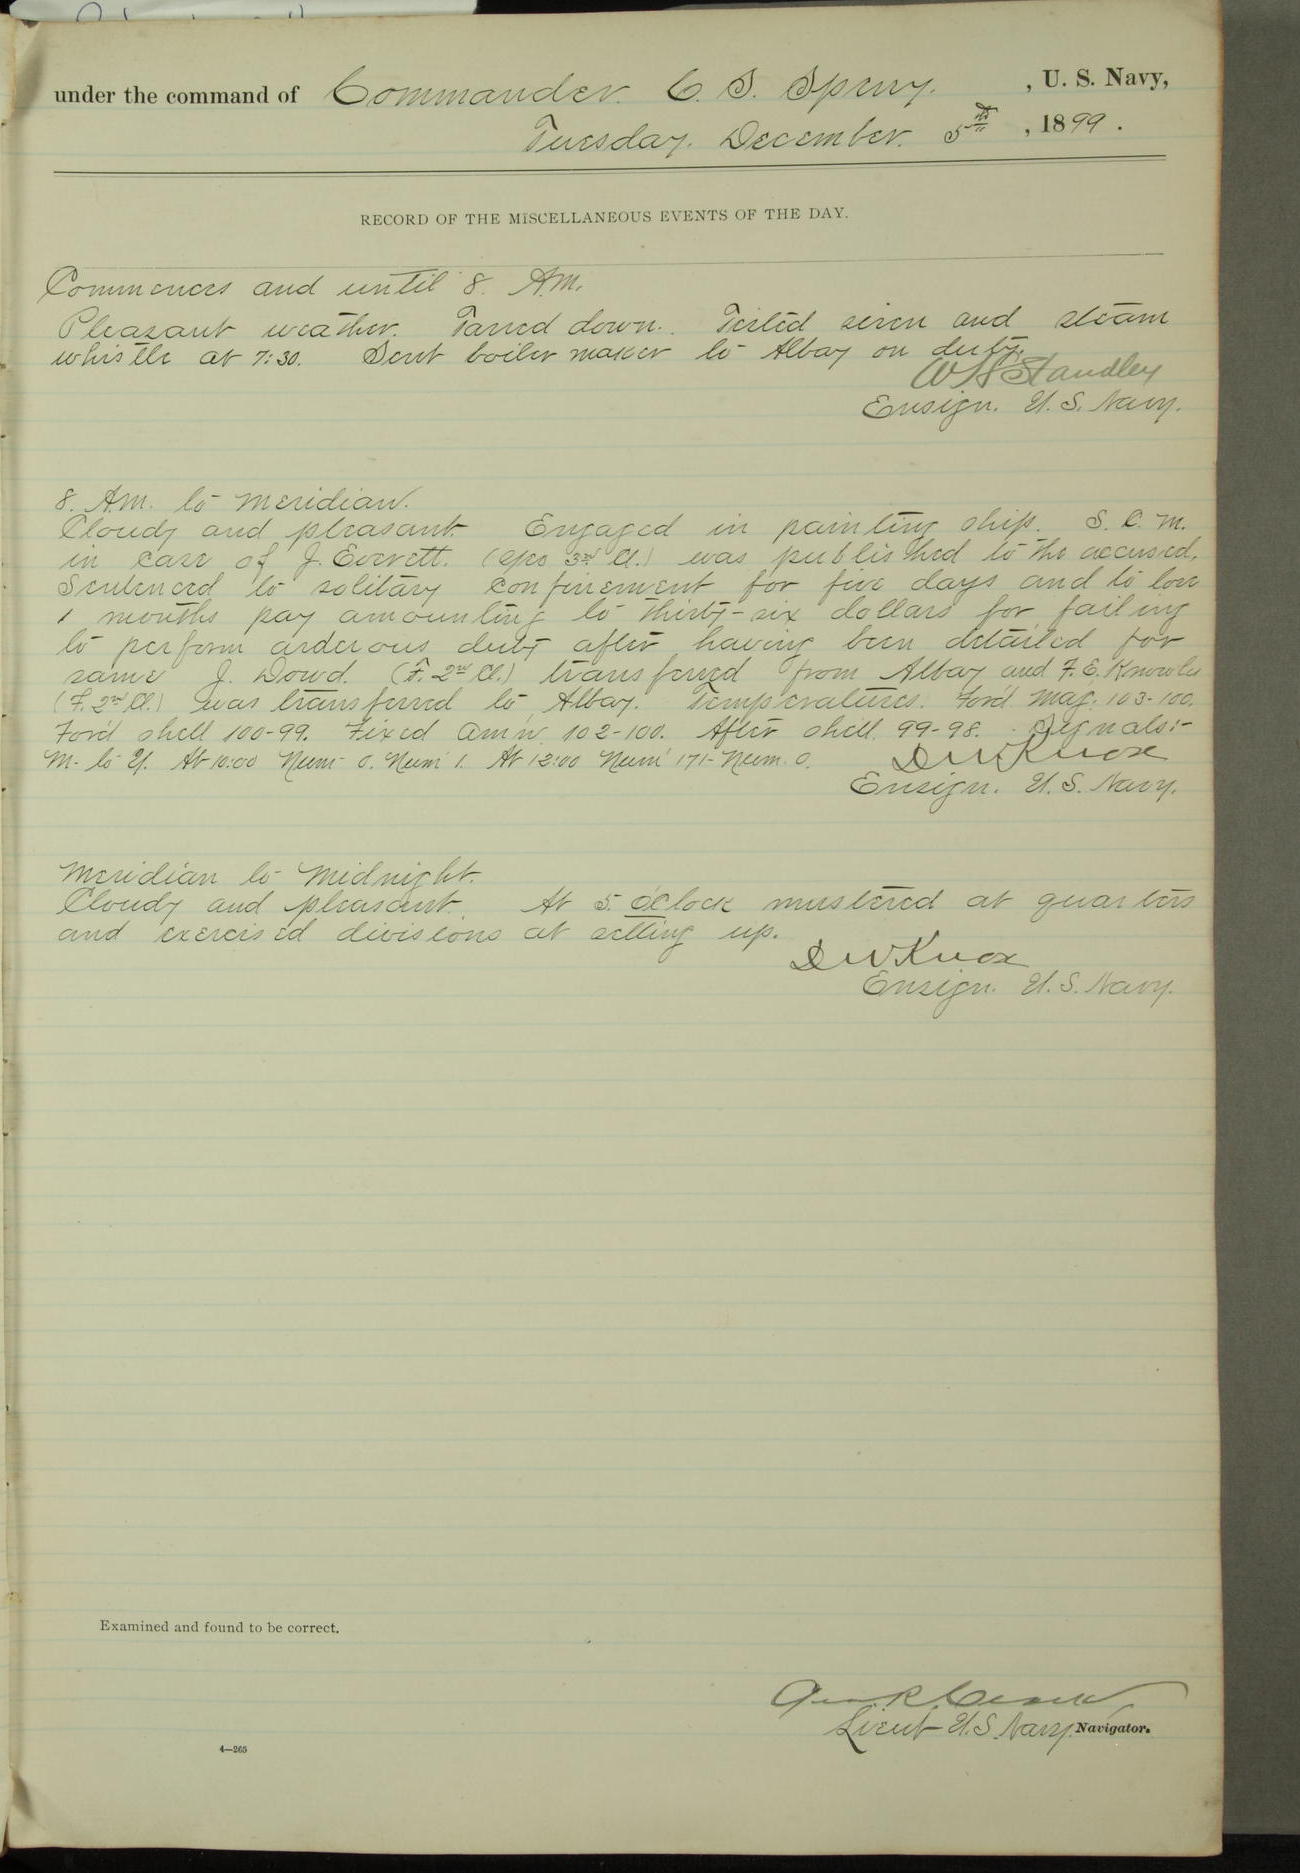 under the command of Commander. C. S. Sperry. , U. S. Navy,
Tuesday. December. 5th , 1899.
RECORD OF THE MISCELLANEOUS EVENTS OF THE DAY.
Commences and until 8. A.M.
Pleasant weather. Tarred down. Tested siren and steam
whistle at 7:30. Sent boiler maker to Albay on duty.
W H Standley
Ensign. U. S. Navy.
8. A.M. to meridian.
Cloudy and pleasant. Engaged in painting ship. S. C. M.
in case of J. Everett. ( 3rd Cl.) was published to the accused.
Sentenced to solitary confinement for five days and to lose
1 months pay amounting to thirty-six dollars for failing
to perform arderous duty after having been detailed for
same J. Dowd. (F. 2nd Cl.) transferred from Albay and F. E. Knowles
(F. 2nd Cl.) was transferred to Albay. Temperatures. For'd Mag. 103-100.
For'd shell 100-99. Fixed am'n 102-100. After shell 99-98. Signals:-
M. to Y. At 10:00 Num- 0. Num' 1. At 12:00 Num' 171- Num. 0.
D W Knox
Ensign. U. S. Navy.
Meridian to Midnight.
Cloudy and pleasant. At 5. O'Clock mustered at quarters
and exercised divisions at setting up.
D W Knox
Ensign. U. S. Navy.
Examined and found to be correct.
Lieut- U. S. Navy. Navigator.
4—265